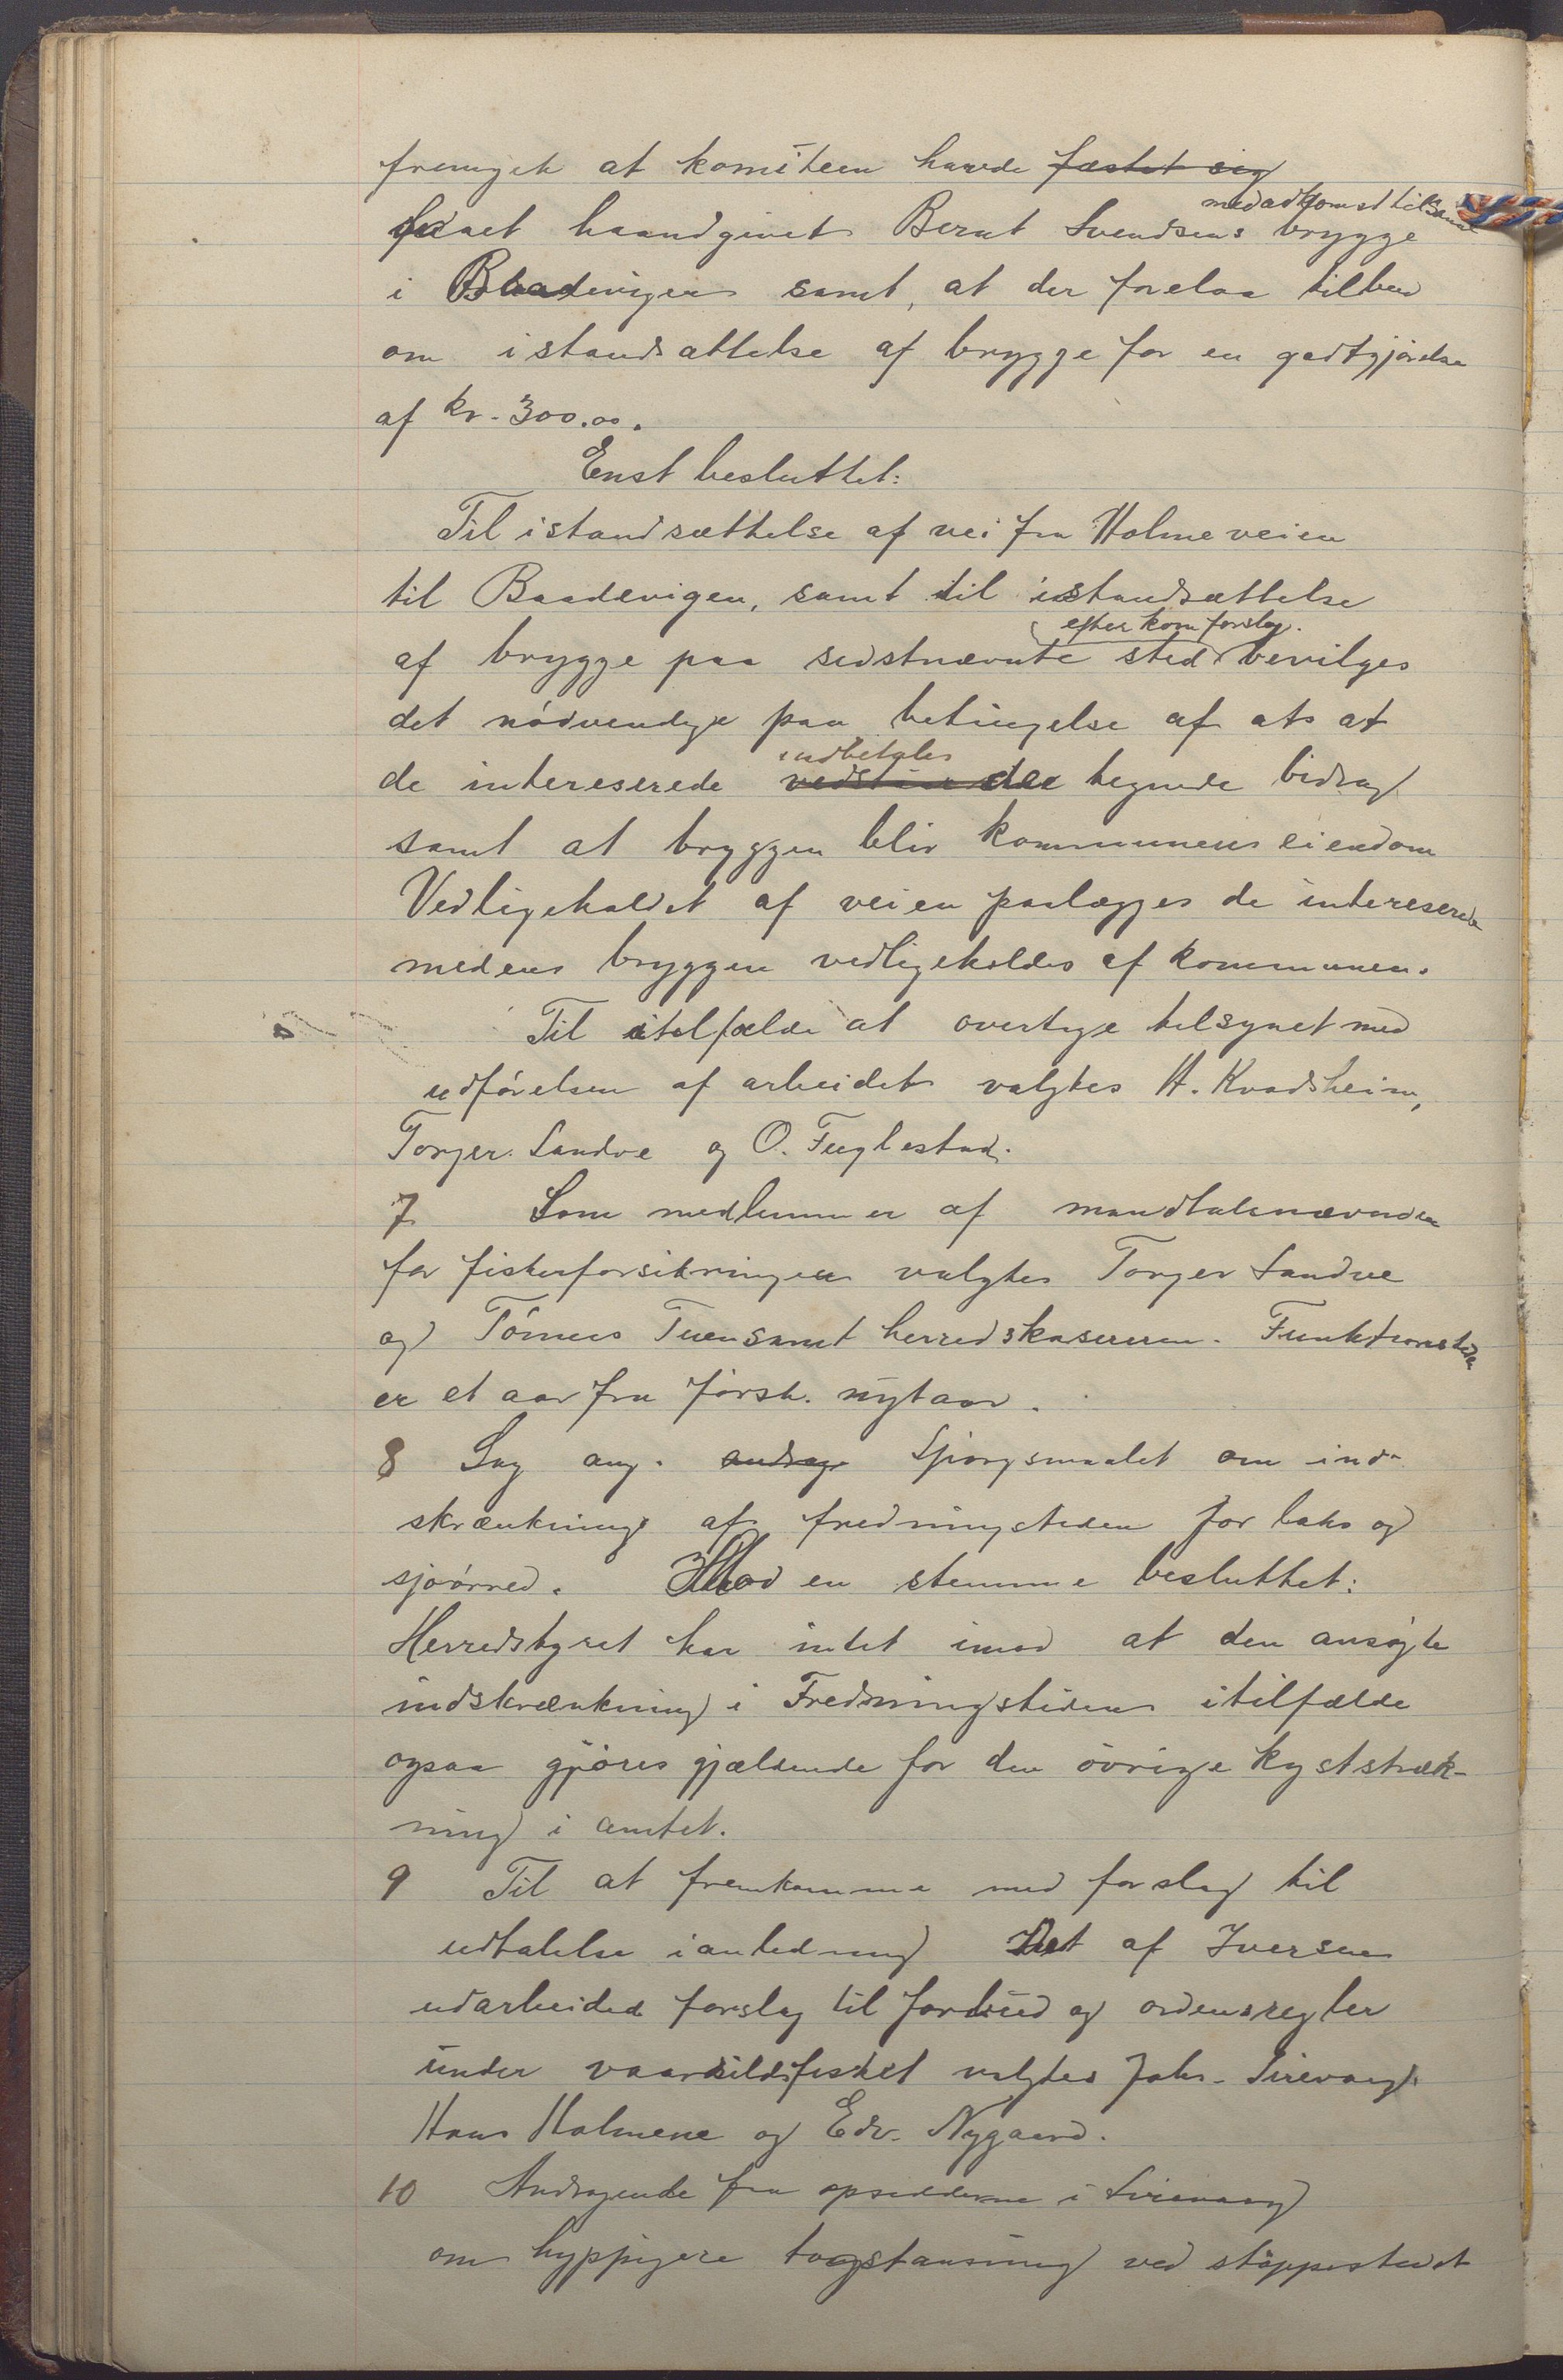 fremgik at komiteen havde fæstet sig
med adkomst til samme
faaet haandgivet Berat Svendsens brygge
i Baadevigen samt, at der forelaa tilbud
om istandsættelse af brygge for en godtgjörelse
af kr. 300.00.
Enst besluttet:
Til istandsættelse af vei fra Holmeveien
til Baadevigen, samt til istandsættelse
efter kom forslag.
af brygge paa sidstnævnte sted bevilges
det nödvendige paa betingelse af at at
indbetales
de intereserede vedstaar der tegnede bidrag
samt at bryggen bliv kommunens eiendom
Vedligeholdet af veien paalægges de intereserede
medens bryggen vedligeholdes af kommunen.
Til itilfælde at overtage tilsynet med
udförelsen af arbeidet valgtes H. Kvadsheim,
Torger Sandve og O. Fuglestad.
7 Som medlemmer af mandtalsnævnden
for fiskerforsikringen valgtes Torger Sandve
og Tönnes Tuen samt herredskasereren. Funktionstiden
er et aar fra först. nytaar.
8 Sag ang. andrag Spörgsmaalet om ind-
skrænkning af fredningstiden for laks og
sjöörred. Mod en stemme besluttet:
Herredstyret har intet imod at den ansögte
indskrænkning i Fredningstiden itilfælde
ogsaa gjöres gjældende for den övrige kyststræk-
ning i amtet.
9 Til at fremkomme med forslag til
udtalelse ianledning Det af Iversen
udarbeidede forslag til forbud og ordensregler
under vaarsildfisket valgtes Johs. Sirevaag
Hans Holmene og Edv. Nygaard.
10 Andragende fra opsidderne i Sirevaag
om hyppigere togstansning ved stoppestedet